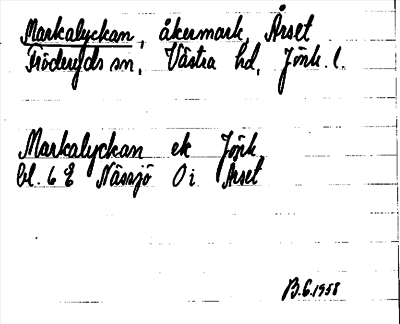 Markalyckan, åkermark, Årset
Fröderyds sn, Västra hd, Jönk. l.
Markalyckan ek Jönk
bl. 6 E Nässjö O i Årset
B.G. 1958